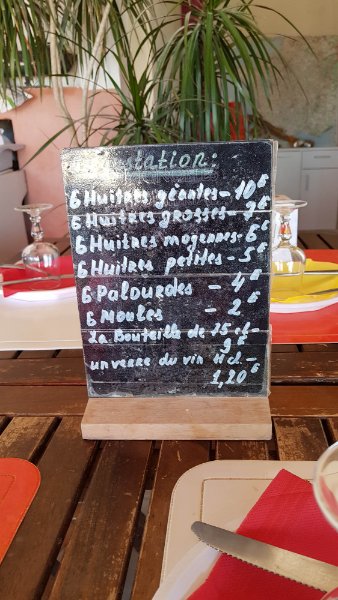 station:
6 Huitres géantes - 10€
6 Huitres grosses - 7€
6 Huitres moyennes - 6€
6 Huitres petites - 5€
6 Palourdes - 4€
6 Moules - 2€
La Bouteille de 75 cl -
9€
un verre du vin 11cl -
1,20€